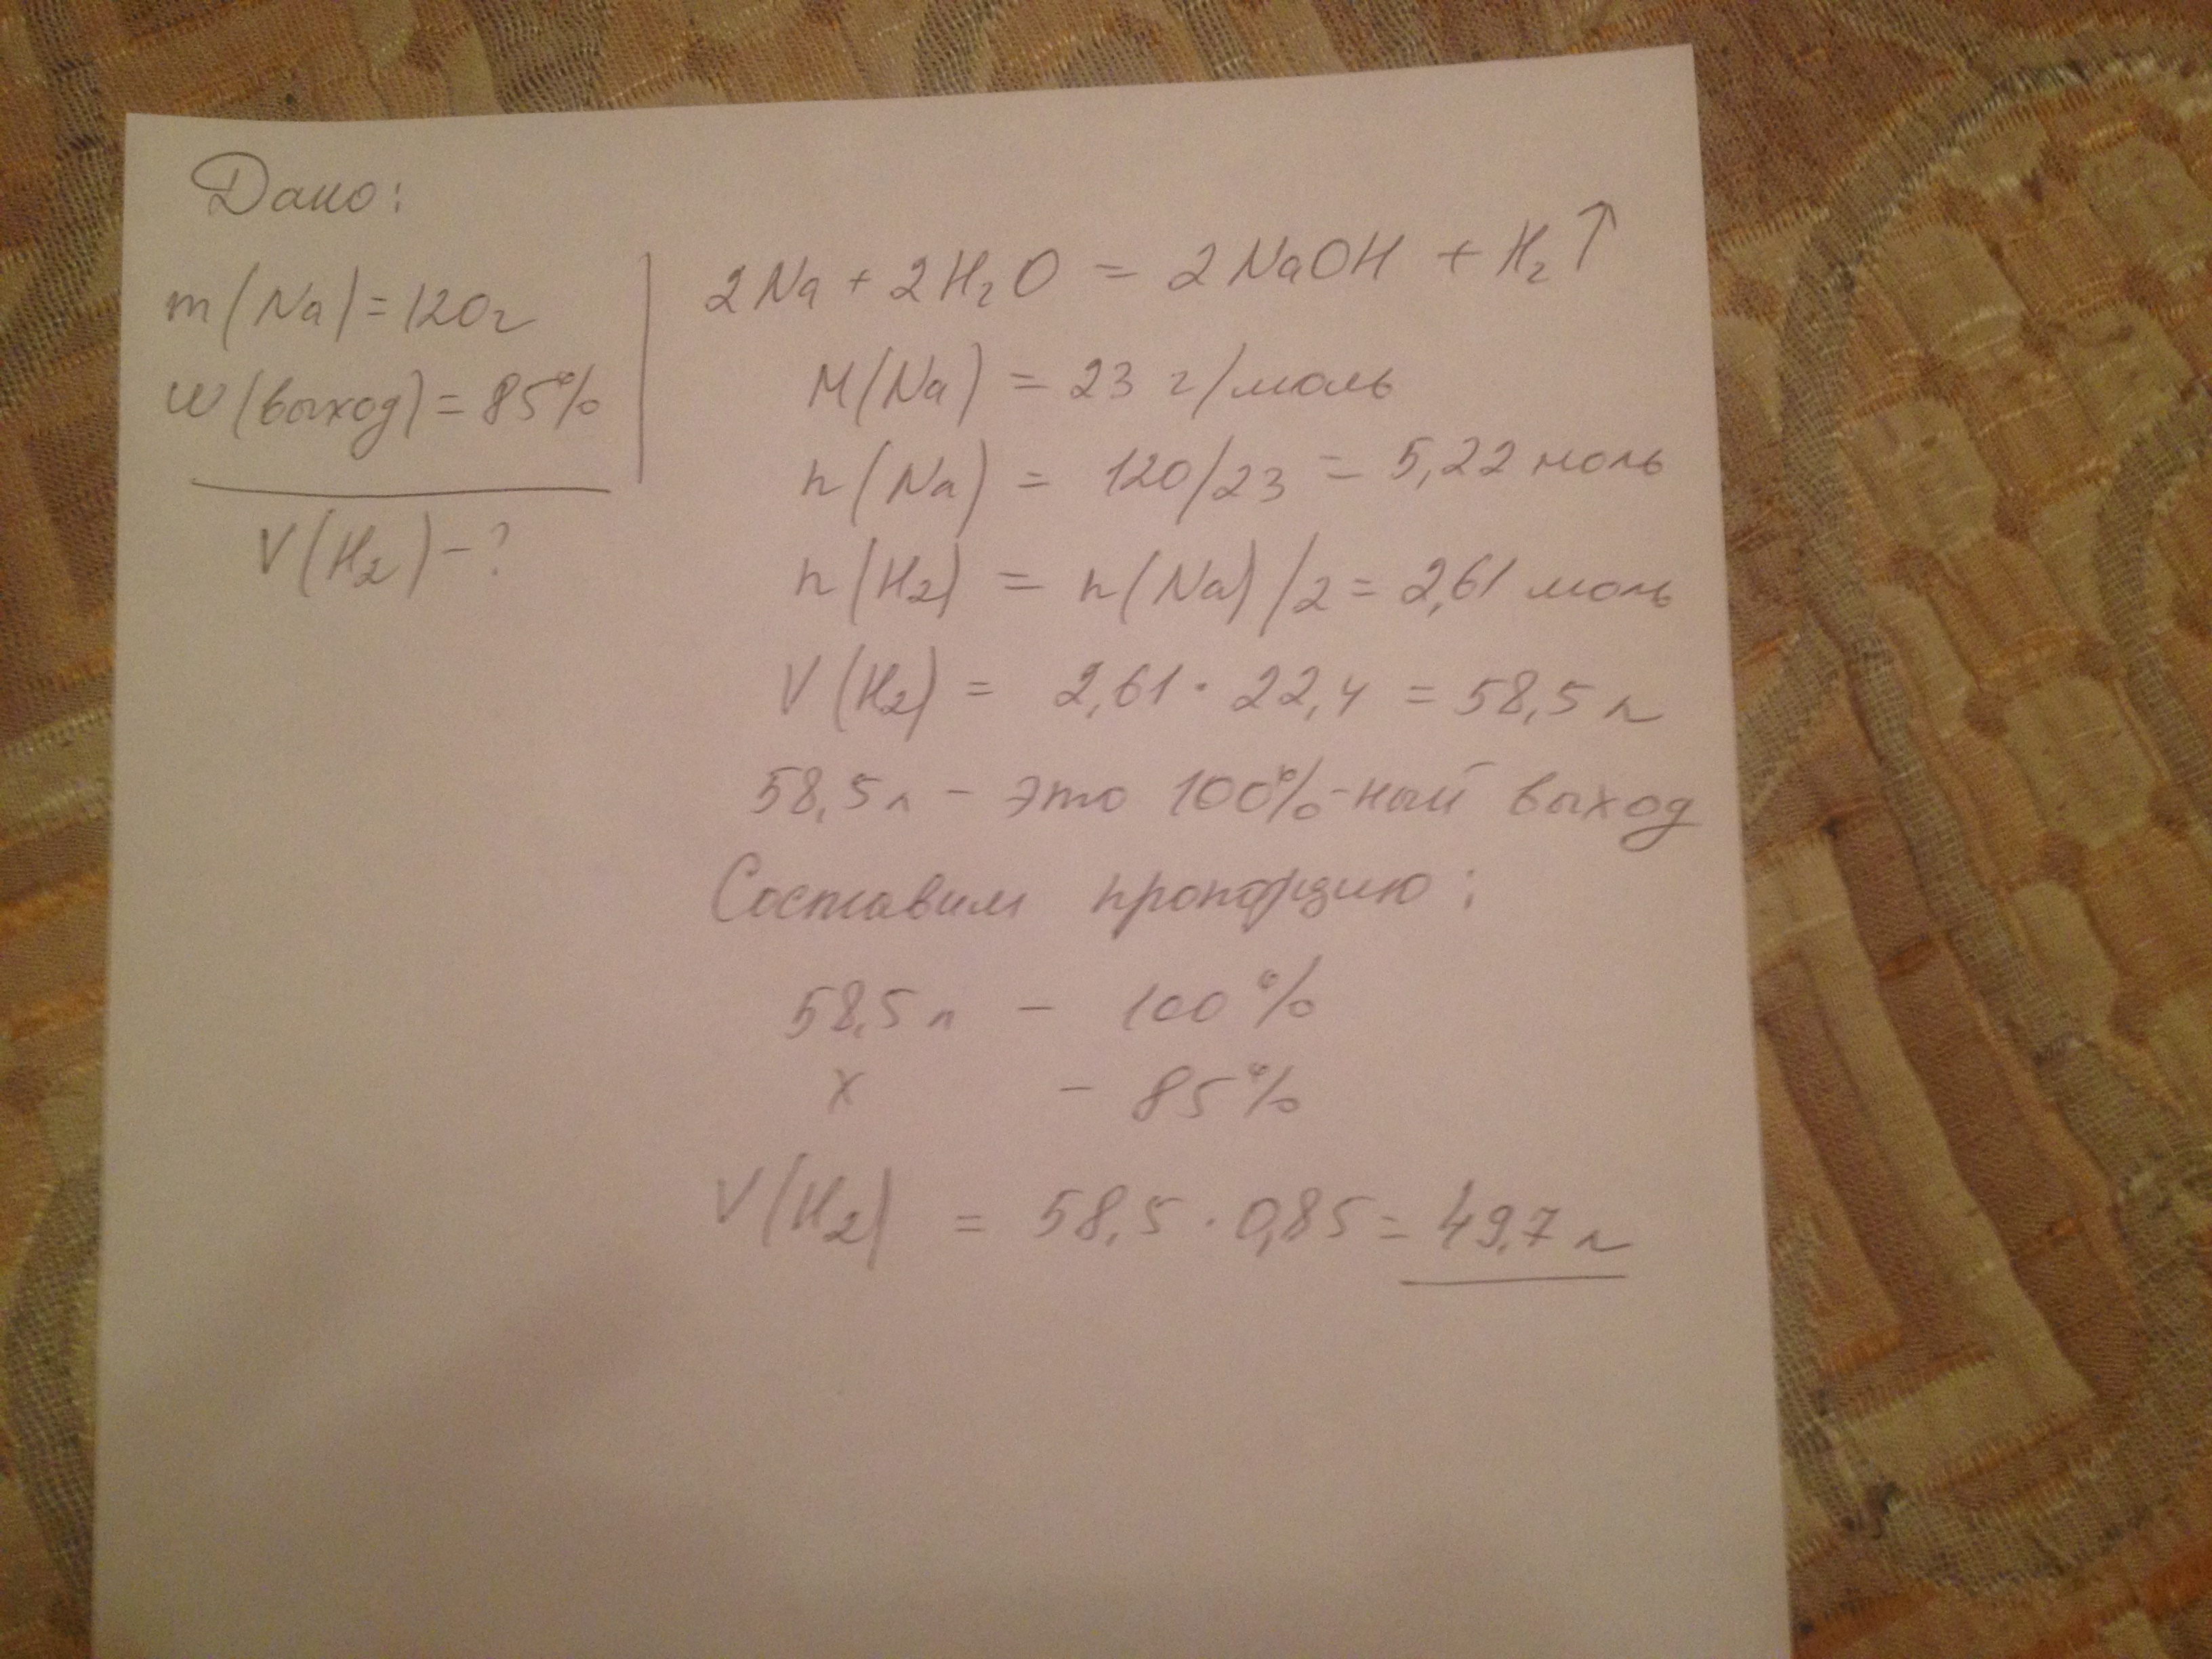 Дано:
m(Na)=120г
w(выход)=85%
V(H₂)-?
2Na + 2H₂O = 2NaOH + H₂↑
M(Na) = 23 г/моль
n(Na) = 120/23 = 5,22 моль
n(H₂) = n(Na)/2 = 2,61 моль
V(H₂) = 2,61 · 22,4 = 58,5 л
58,5 л - это 100%-ный выход
Составим пропорцию:
58,5 л - 100%
x - 85%
V(H₂) = 58,5 · 0,85 = 49,7 л